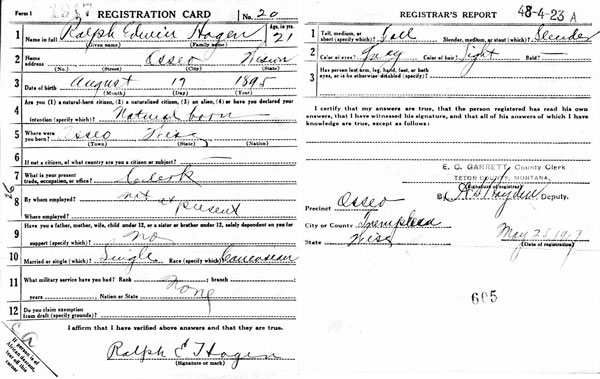 Form 1
1917
REGISTRATION CARD
No. 20
1 Name in full Ralph Edwin Hagen Age, in yrs. 21
(Given name) (Family name)
2 Home address Osseo Wiscon
(No.) (Street) (City) (State)
3 Date of birth August 17 1895
(Month) (Day) (Year)
4 Are you (1) a natural-born citizen, (2) a naturalized citizen, (3) an alien, (4) or have you declared your
intention (specify which)? Natural born
5 Where were you born? Osseo Wisc
(Town) (State) (Nation)
6 If not a citizen, of what country are you a citizen or subject?
7 What is your present trade, occupation, or office? Clerk
26
8 By whom employed? not at present
Where employed?
9 Have you a father, mother, wife, child under 12, or a sister or brother under 12, solely dependent on you for
support (specify which)? no
10 Married or single (which)? Single Race (specify which)? Caucasian
11 What military service have you had? Rank ; branch
years ; Nation or State None
12 Do you claim exemption from draft (specify grounds)?
I affirm that I have verified above answers and that they are true.
Ralph E Hagen
(Signature or mark)
If person is of
African descent,
tear off this
corner
REGISTRAR'S REPORT
48-4-23 A
1 Tall, medium, or short (specify which)? Tall Slender, medium, or stout (which)? Slender
2 Color of eyes? Gray Color of hair? Light Bald?
3 Has person lost arm, leg, hand, foot, or both
eyes, or is he otherwise disabled (specify)?
I certify that my answers are true, that the person registered has read his own
answers, that I have witnessed his signature, and that all of his answers of which I
have knowledge are true, except as follows:
E. C. GARRETT, County Clerk
TETON COUNTY, MONTANA,
(Signature of registrar)
By Hayden Deputy.
Precinct Osseo
City or County Trempleau
State Wisc
May 25 1917
(Date of registration)
605